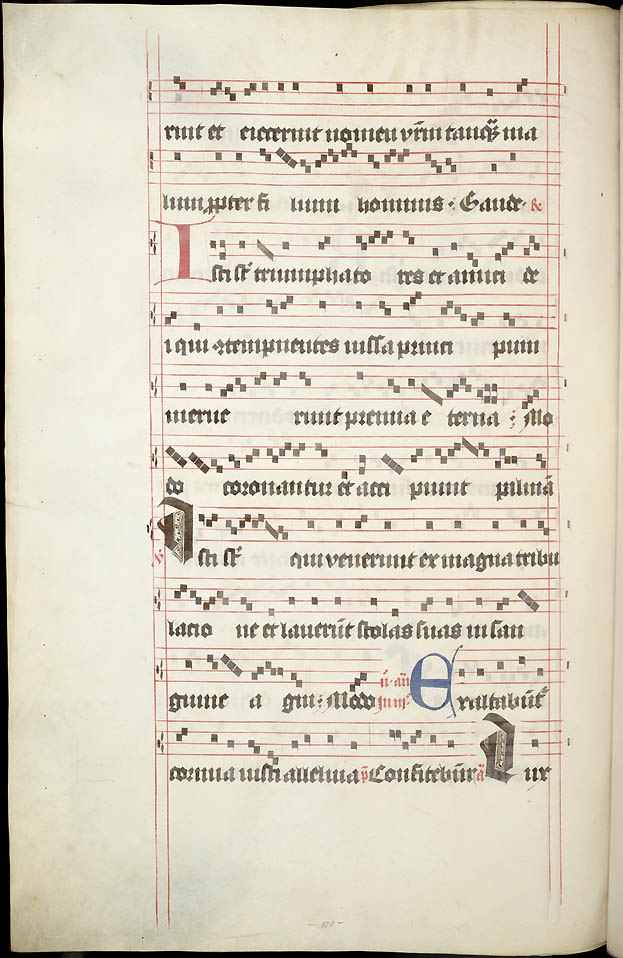 runt et eiecerunt nomen vr̄m tanq̄ ma
lum ꝓpter fi lium hominis · Gaude · &
Isti st̄ triumphato res et amici de
i qui ↄtempnentes iussa princi pum
merue runt premia e terna : Mo
do coronantur et acci piunt palmā
Isti st̄ qui venerunt ex magna tribu
lacio ne et lauerūt stolas suas in san
guine a gni : Modo Exaltabūt̄
cornua iusti alleluia p̄ Confitebim̄r ā ux